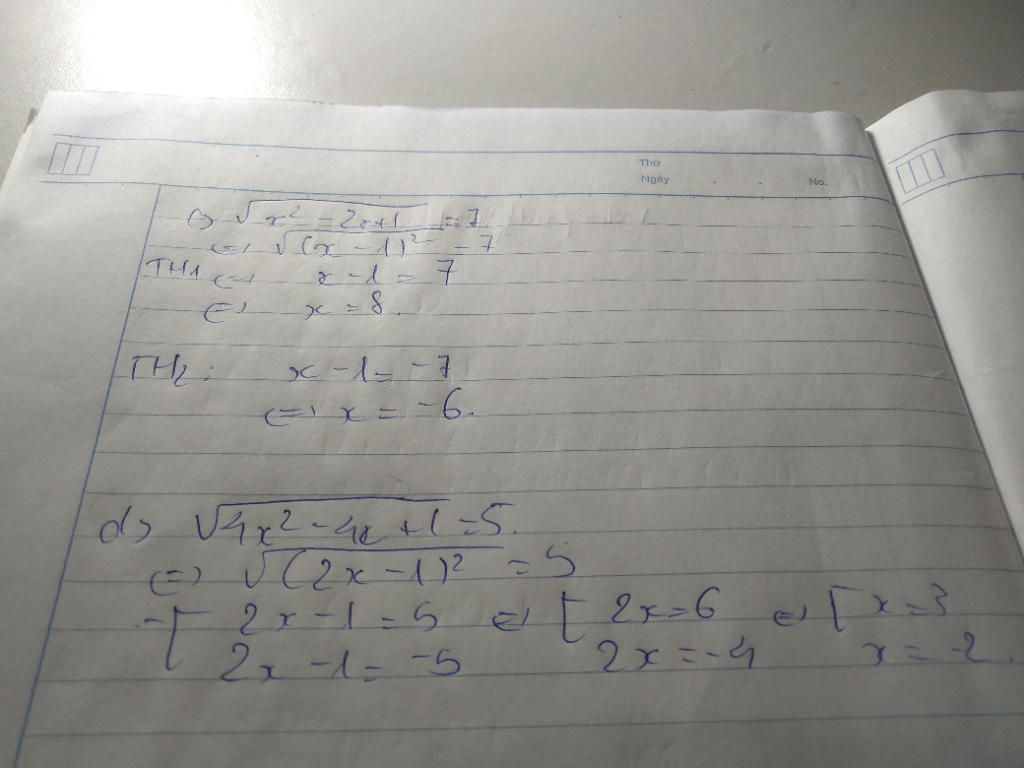 Thứ
Ngày . . No.
c) √(x² - 2x+1) = 7
<=> √((x - 1)²) = 7
TH1 <=> x - 1 = 7
<=> x = 8.
TH2: x - 1 = -7
<=> x = -6.
d) √(4x² - 4x + 1) = 5.
<=> √((2x - 1)²) = 5
[ 2x - 1 = 5 <=> [ 2x = 6 <=> [ x = 3
2x - 1 = -5 2x = -4 x = -2.